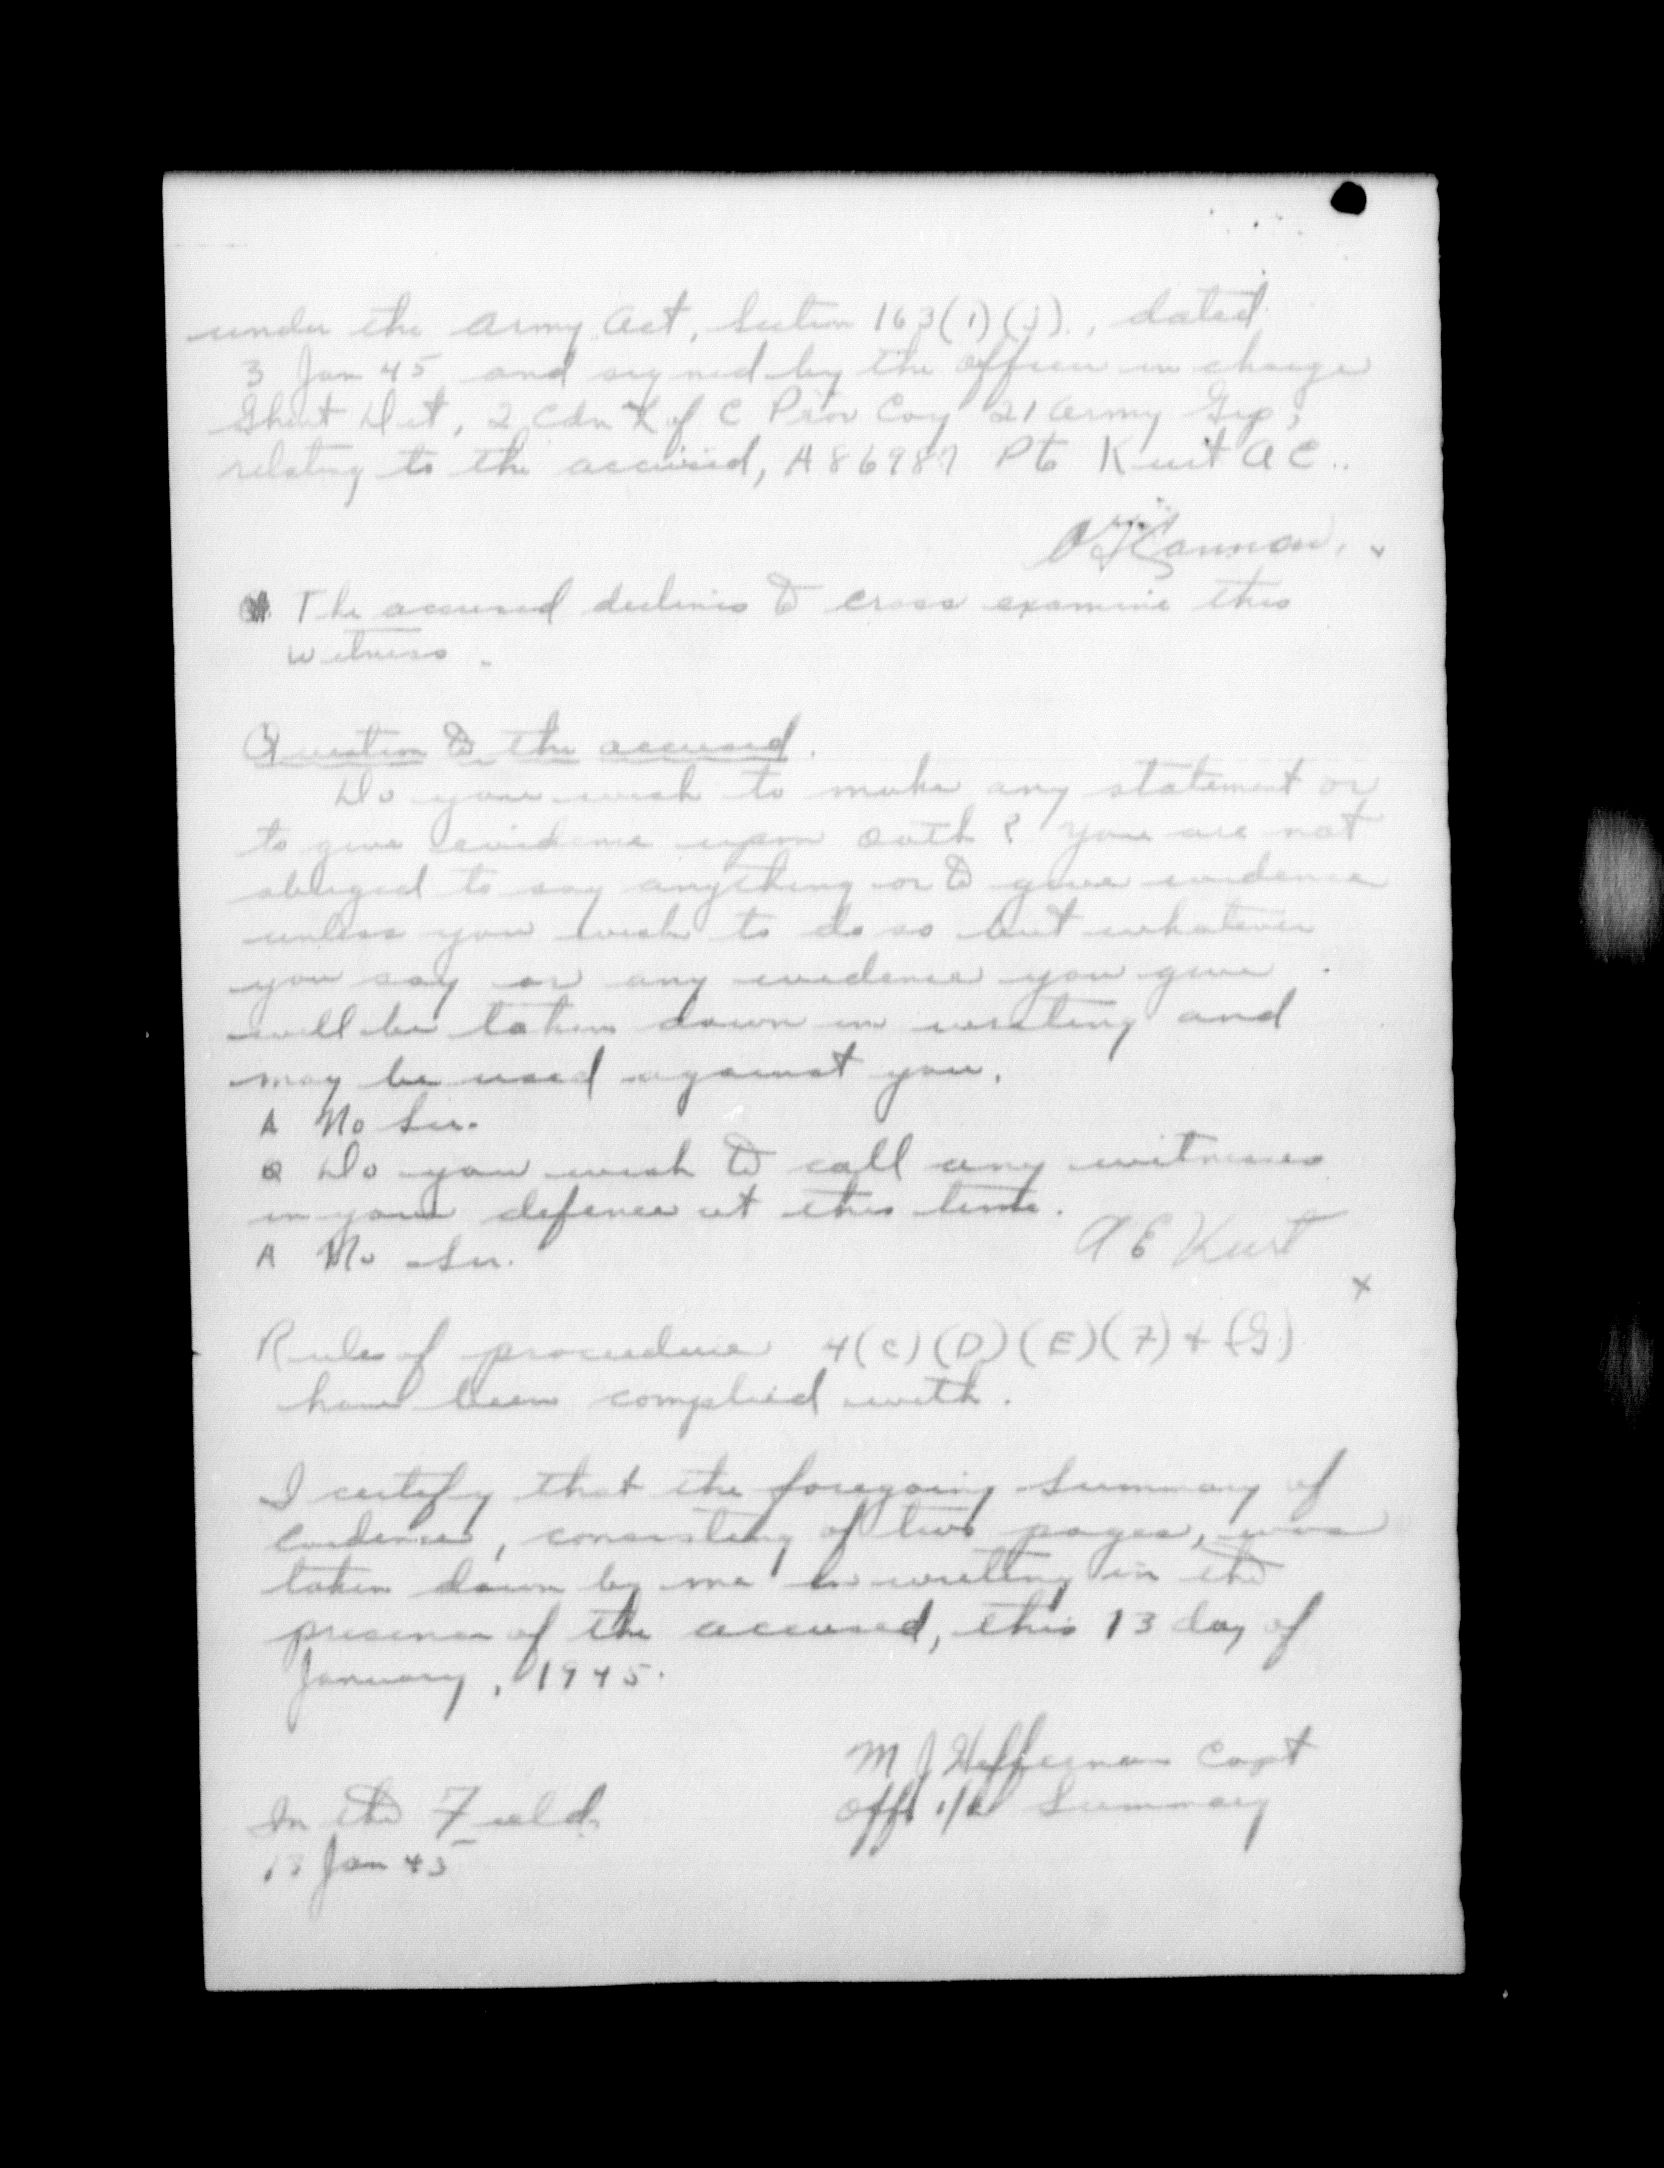 under the Army Act, Section 163(1)(j)., dated
3 Jan 45 and signed by the officer in charge
Ghent Det, 2 Cdn L of C Prov Coy 21 Army Grp,
relating to the accused, A86987 Pte Kurt A E..
The accused declines to cross examine this
witness.
Question to the accused.
Do you wish to make any statement or
to give evidence upon oath? You are not
obliged to say anything or to give evidence
unless you wish to do so but whatever
you say or any evidence you give
will be taken down in writing and
may be used against you.
A No Sir.
Q Do you wish to call any witnesses
in your defence at this time.
A E Kurt
A No Sir.
x
Rules of procedure 4(C)(D)(E)(F) + (G)
have been complied with.
I certify that the foregoing Summary of
Evidence, consisting of two pages, was
taken down by me in writing in the
presence of the accused, this 13 day of
January, 1945.
M J Heffernan Capt
Offr i/c Summary
In the Field
13 Jan 45